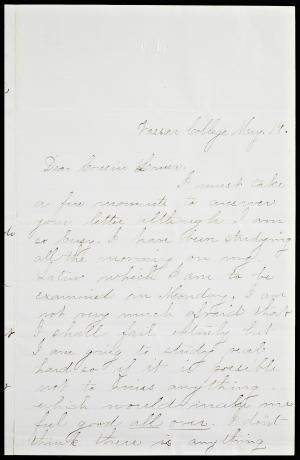 Vassar College May, 19.
Dear Cousin
I must take
a few moments to answer
your letter although I am
so busy. I have been studying
all the morning on my
Latin which I am to be
examined on Monday. I am
not very much afraid that
I shall fail entirely but
I am going to study real
hard so if it is possible
not to miss anything
which would make me
feel good all over. I don't
think there is anything